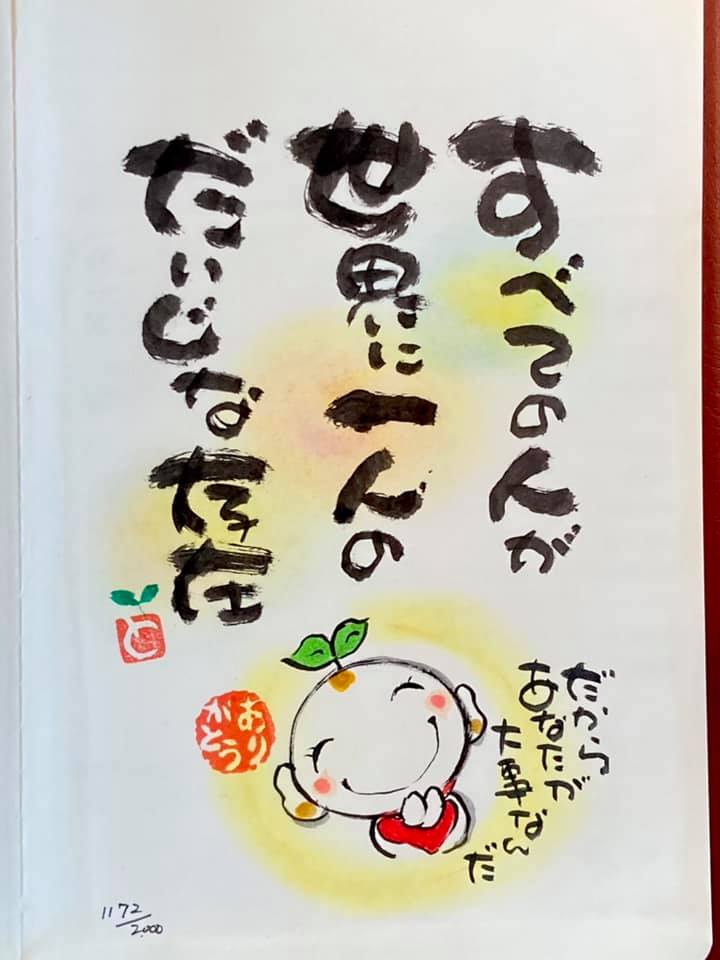 すべての人が
世界に一人の
だいじな存在
と
だから
あなたが
大事なん
だ
ありがとう
1172/2000